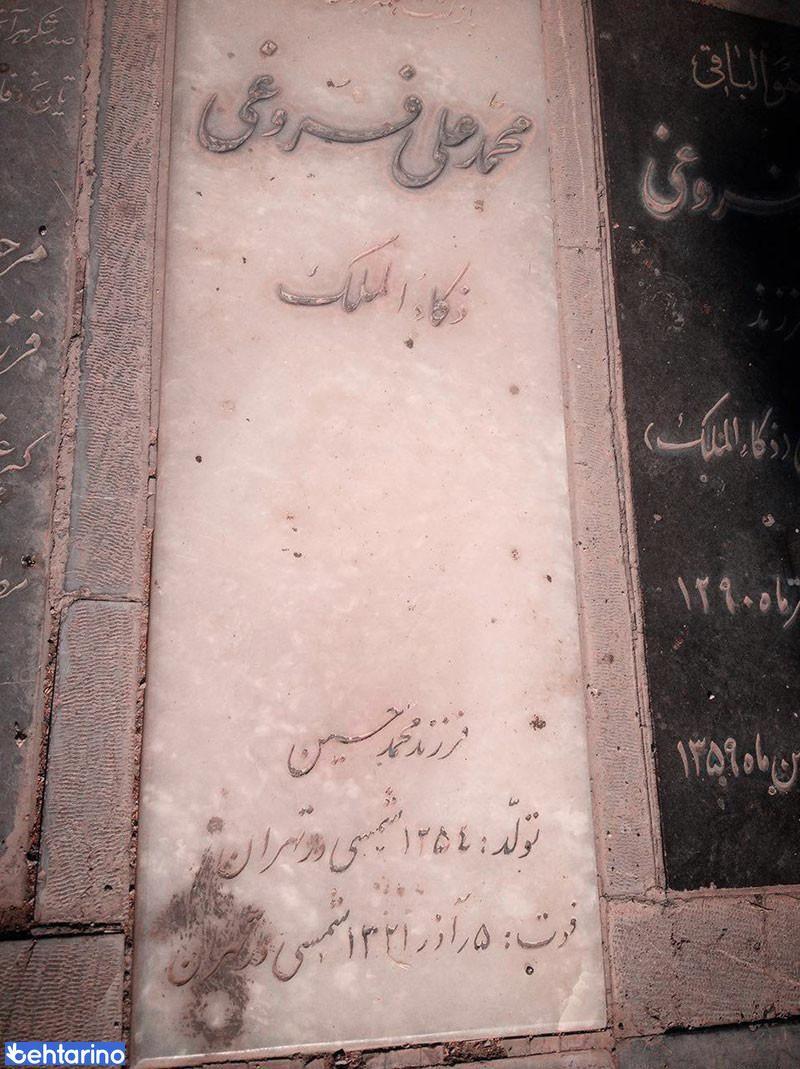 محمد علی فروغی
ذکاء الملک
فرزند محمد حسین
تولّد: ۱۲۵٤ شمسی در تهران
فوت: ۵ آذر ۱۳۲۱ شمسی در تهران
هو الباقی
فروغی
فرزند
(ذکاء الملک)
ماه ۱۲۹۰
ماه ۱۳۵۹
behtarino